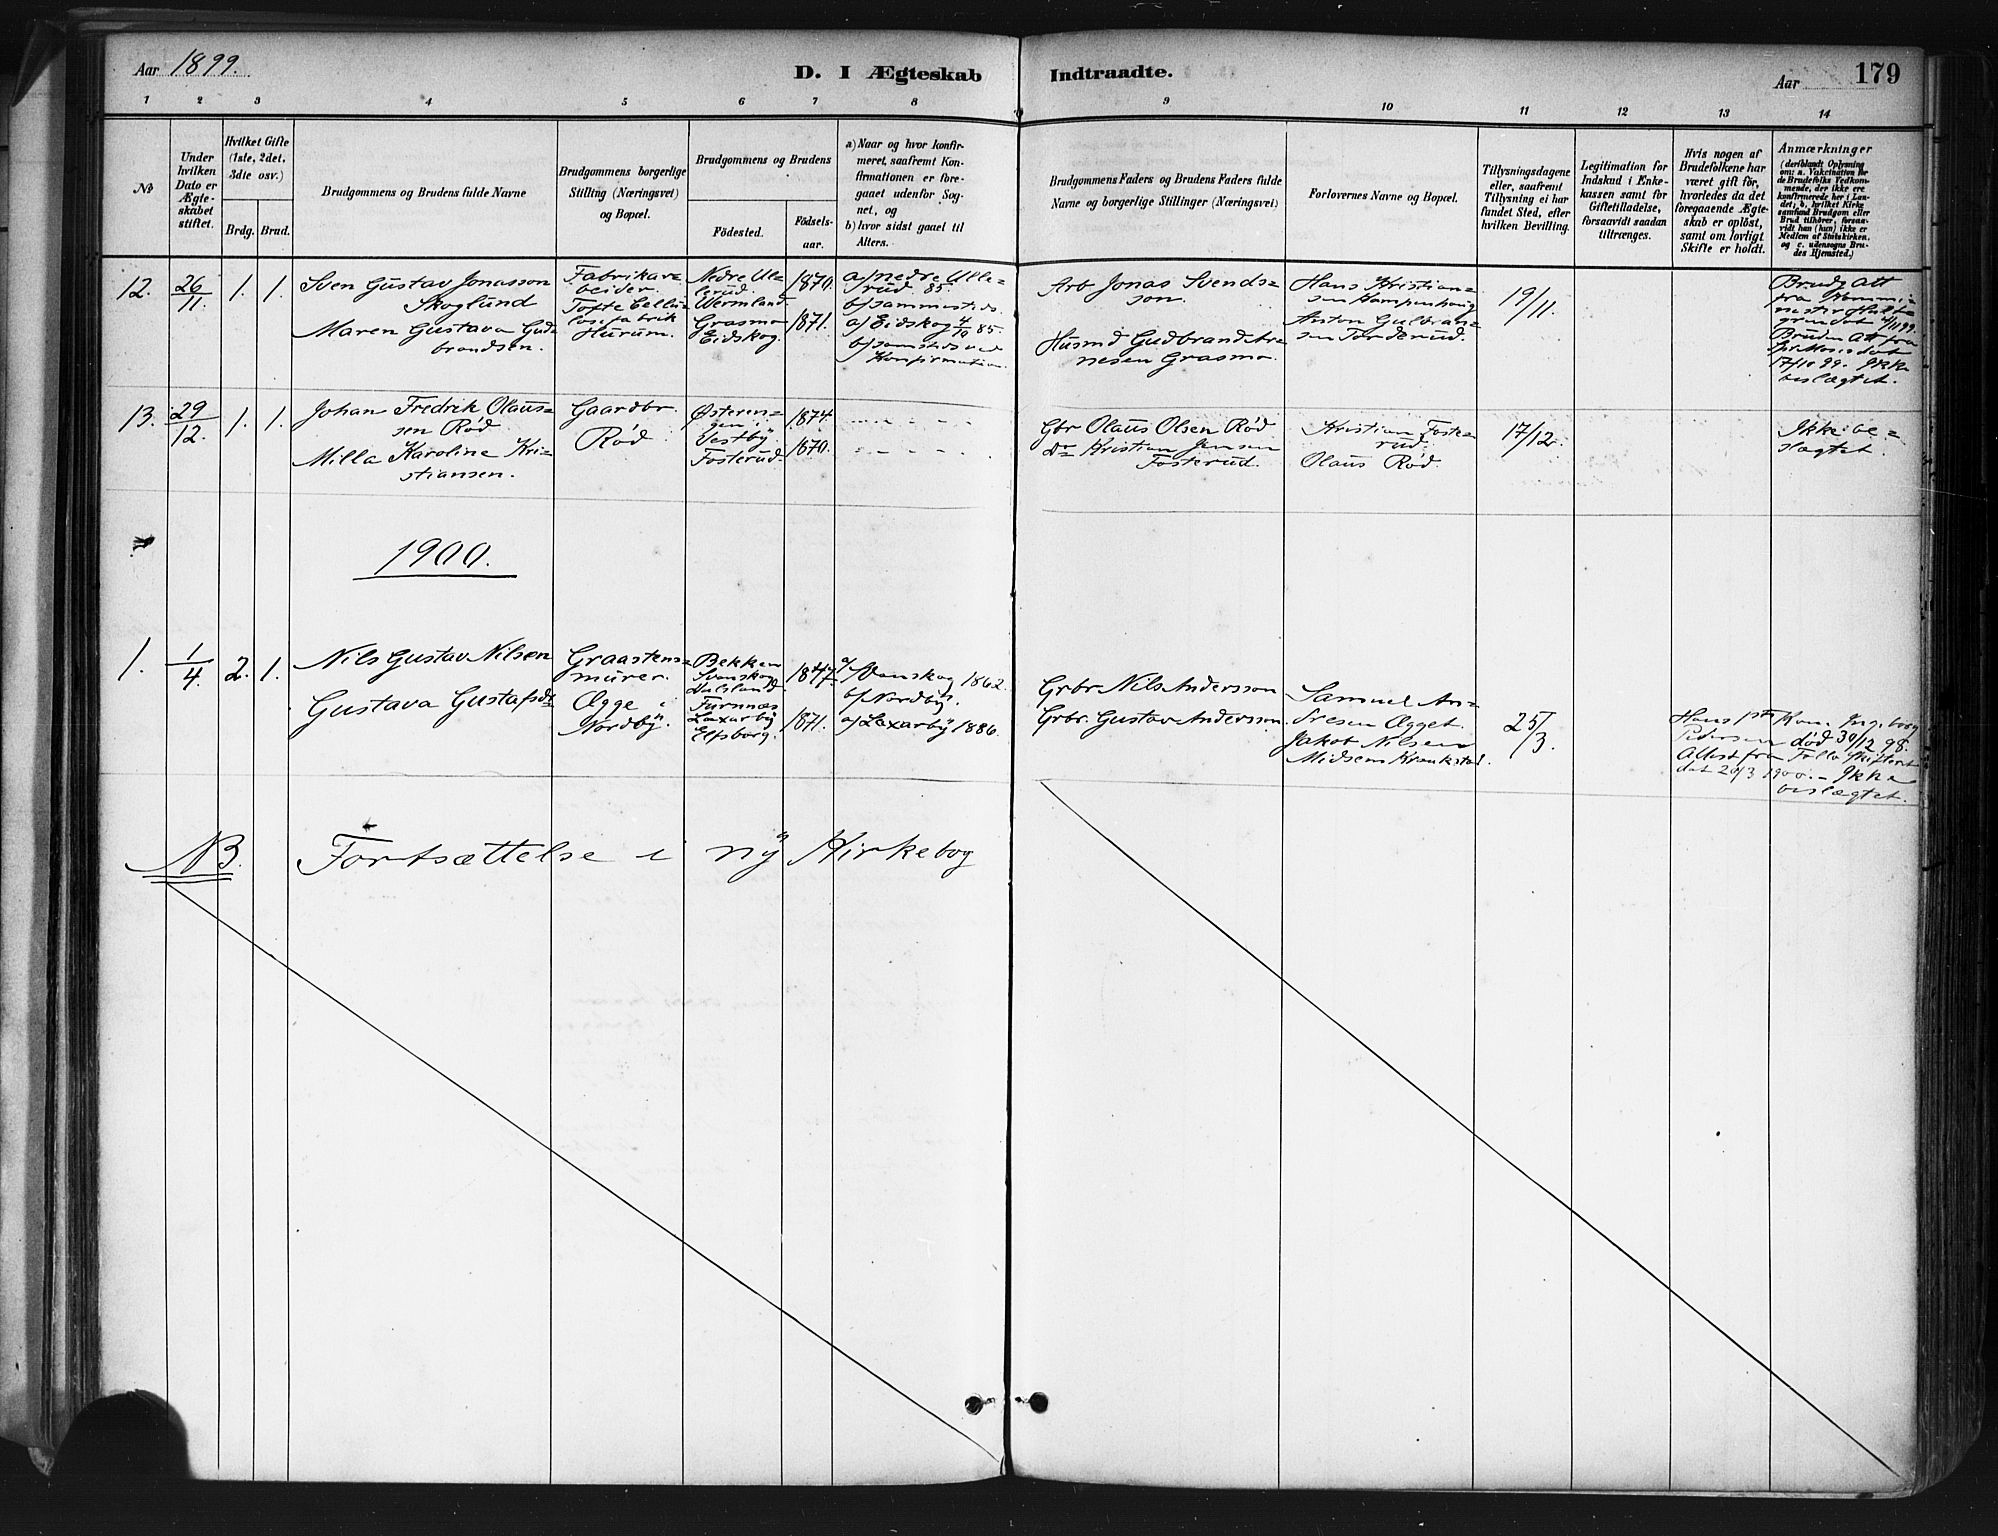 Aar 1899.
D. I Ægteskab Indtraadte.
Aar 179
1 2 3 4 5 6 7 8 9 10 11 12 13 14
No
Under hvilken Dato er Ægteskabet stiftet.
Hvilket Gifte (1ste, 2det, 3die osv.)
Brdg. Brud.
Brudgommens og Brudens fulde Navne
Brudgommens borgerlige Stilling (Næringsvei) og Bopæl.
Brudgommens og Brudens
Födested. Födselsaar.
a) Naar og hvor konfirmeret, saafremt Konfirmationen er foregaaet udenfor Sognet, og
b) hvor sidst gaaet til Alters.
Brudgommens Faders og Brudens Faders fulde Navne og borgerlige Stillinger (Næringsvei)
Forlovernes Navne og Bopæl.
Tillysningsdagene eller, saafremt Tillysning ei har fundet Sted, efter hvilken Bevilling.
Legitimation for Indskud i Enkekassen samt for Giftetilladelse, forsaavidt saadan tiltrænges.
Hvis nogen af Brudefolkene har været gift för, hvorledes da det foregaaende Ægteskab er oplöst, samt om lovligt Skifte er holdt.
Anmærkninger
(deriblandt Oplysning om: a. Vakcination for de Brudefolks Vedkommende, der ikke ere konfirmerede her i Landet; b. hvilket Kirkesamfund Brudgom eller Brud tilhörer, forsaavidt han (hun) ikke er Medlem af Statskirken, og c. udensogns Brudes Hjemsted.)
12. 26/11. 1. 1.
Sven Gustav Jonasson
Skoglund
Maren Gustava Gud
brandsen.
Fabrikar
beider.
Tofte Cellu
losefabrik
Hurum.
Nedre Ulle
rud.
Wermland
Grasmo
Eidskog.
1870.
1871.
a) nedre Ulle=
rud. 85.
b) sammesteds.
a) Eidskog 4/10 85.
b) samsteds ved
Konfirmation.
Arb Jonas Svends=
son.
Husmd Gudbrand Ar
nesen Grasmo.
Hans Kristian=
sen Kampenhaug
Anton Gulbran=
sen Torderud.
19/11.
Brudg Att
fra
Bruden Att fra
17/10 99. Ikke
beslægtet.
13. 29/12. 1. 1.
Johan Fredrik Olaus=
sen Rød
Milla Karoline Kri=
stiansen.
Gaardbr.
Rød
Østeren=
gen i
Vestby
Fosterud.
1874.
1870.
Gbr Olaus Olsen Rød
do Kristian Jensen
Fosterud.
Kristian Foste=
rud.
Olaus Rød.
17/12.
Ikke be=
slægtet.
1900.
1. 1/4. 2. 1.
Nils Gustav Nilsen
Gustava Gustafsdr
Graastens=
murer.
Ægge i
Nordby.
Bekken
Svanskog
Dalsland
Furnnæs
Laxarby
Elfsborg.
1847.
1871.
a/ Svanskog 1862.
b/ Nordby.
a/ Laxarby 1886.
Grbr Nils Andersson
Grbr. Gustav Andersson.
Samuel An=
dresen Ægget.
Jakob Nilsen
Midsem Kraakstad.
25/3.
Hans Kon. Ingeborg
Petersen død 30/12 98.
Attest fra Follo Skifteret
dat 20/3 1900. - Ikke
beslægtet.
NB. Fortsættelse i ny Kirkebog